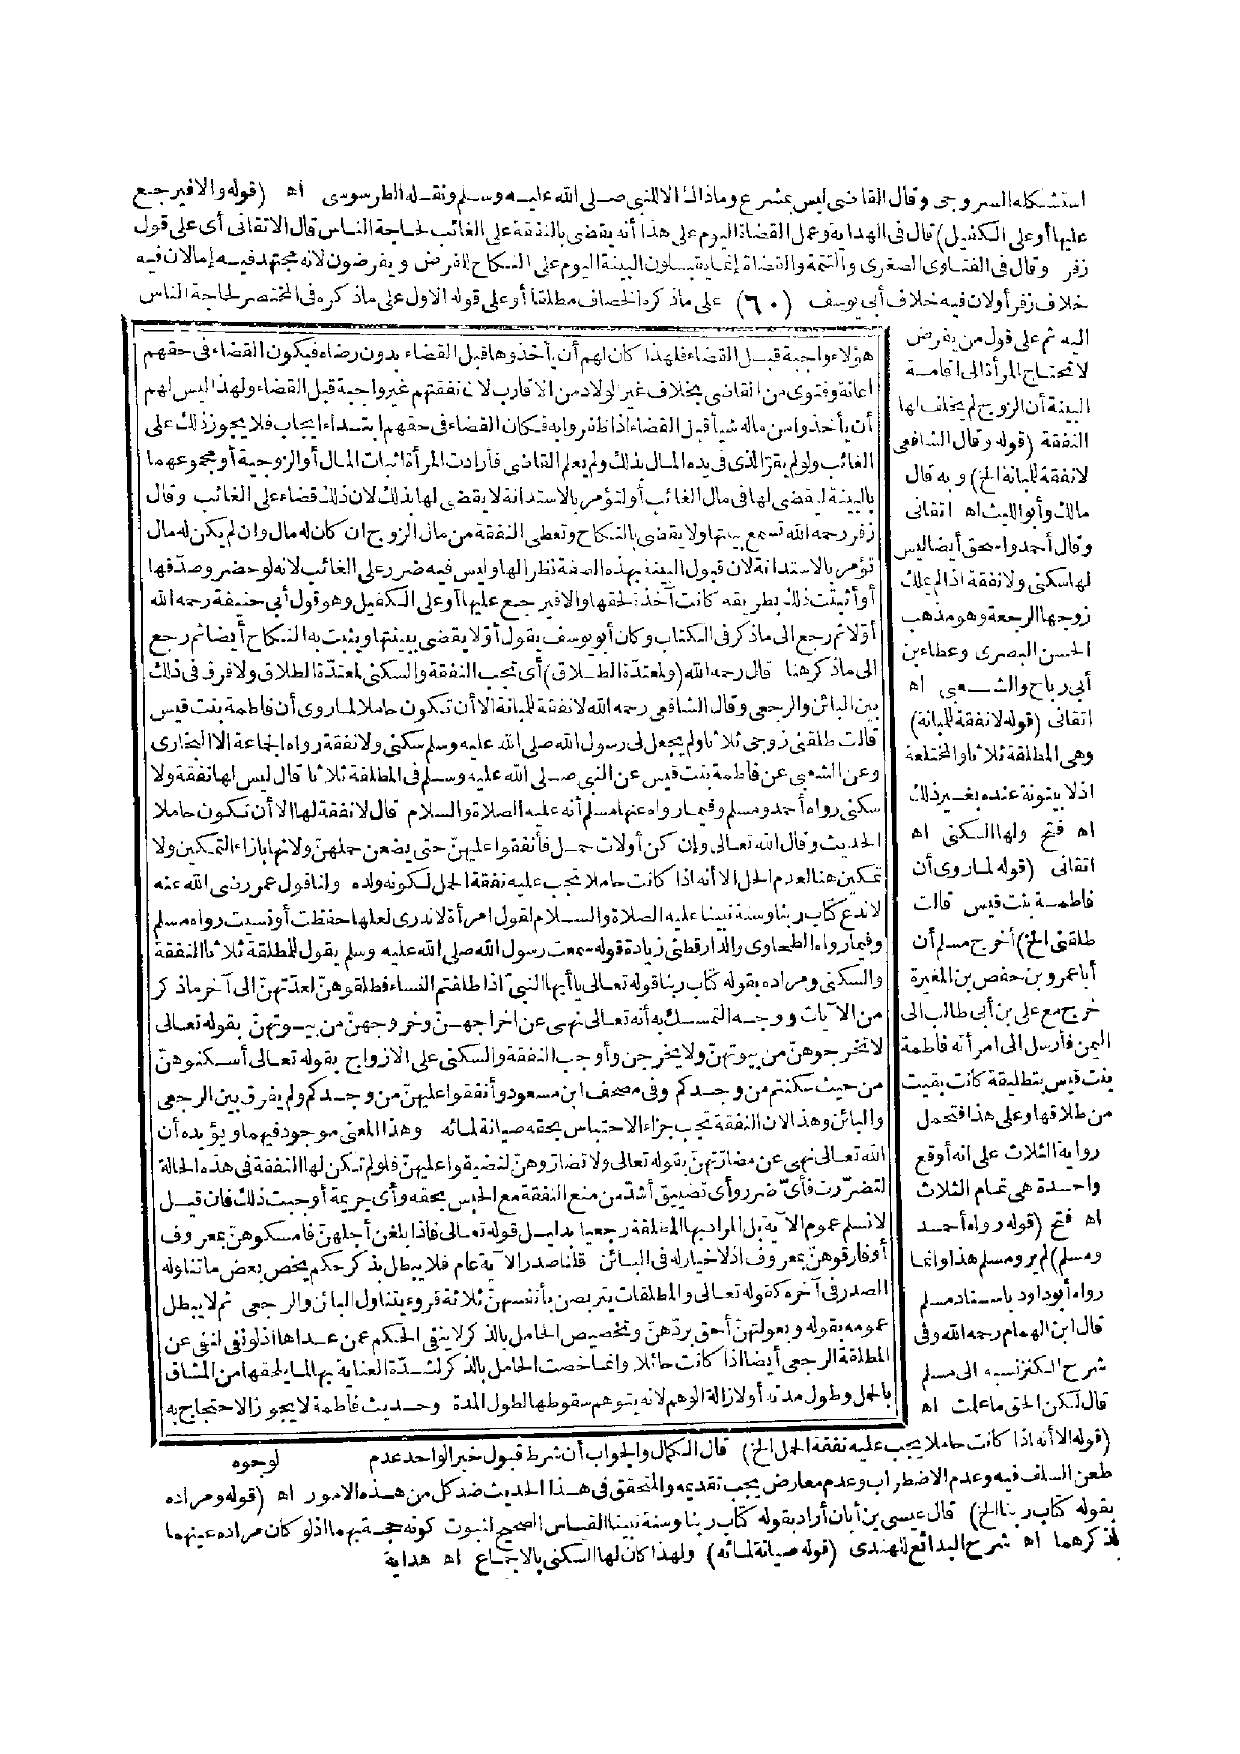 استشكله السروجى وقال القاضى ليس بمشرع وماذاك الا للنبى صلى الله عليه وسلم ونقله الطرسوسى اه (قوله والا فيرجع
عليها أو على الكفيل) قال فى الهداية وعمل القضاة اليوم على هذا أنه يقضى بالنفقة على الغائب لحاجة الناس قال الاتقانى أى على قول
زفر وقال فى الفتاوى الصغرى والتتمة والقضاة إنما يقبلون البينة اليوم على النكاح للفرض ويفرضون لانه مجتهد فيه إما لان فيه
خلاف زفر أو لان فيه خلاف أبى يوسف (٦٠) على ماذكره الخصاف مطلقا أو على قوله الاول على ماذكره فى المختصر لحاجة الناس
اليه ثم على قول من يفرض
لا تحتاج المرأة الى اقامة
البينة أن الزوج لم يخلف لها
النفقة (قوله وقال الشافعى
لا نفقة للمبانة الخ) وبه قال
مالك وأبو الليث اه اتقانى
وقال أحمد واسحق أيضا ليس
لها سكنى ولا نفقة اذا لم يملك
زوجها الرجعة وهو مذهب
الحسن البصرى وعطاء بن
أبى رباح والشعبى اه
اتقانى (قوله لا نفقة للمبانة)
وهى المطلقة ثلاثا والمختلعة
اذ لا بينونة عنده بغير ذلك
اه فتح ولها السكنى اه
اتقانى (قوله لما روى أن
فاطمة بنت قيس قالت
طلقنى الخ) أخرج مسلم أن
أبا عمرو بن حفص بن المغيرة
خرج مع على بن أبى طالب الى
اليمن فأرسل الى امرأته فاطمة
بنت قيس بتطليقة كانت بقيت
من طلاقها وعلى هذا فتحمل
رواية الثلاث على انه أوقع
واحدة هى تمام الثلاث
اه فتح (قوله رواه أحمد
ومسلم) لم يرو مسلم هذا وانما
رواه أبو داود باسناد مسلم
قال ابن الهمام رحمه الله وفى
شرح الكنز نسبه الى مسلم
قال لكن الحق ما علمت اه
هؤلاء واجبة قبل القضاء فلهذا كان لهم أن يأخذوها قبل القضاء بدون رضاه فيكون القضاء فى حقهم
اعانة وفتوى من القاضى بخلاف غير الولاد من الاقارب لان نفقتهم غير واجبة قبل القضاء ولهذا ليس لهم
أن يأخذوا من ماله شيأ قبل القضاء اذا ظفروا به فكان القضاء فى حقهم ابتداء ايجاب فلا يجوز ذلك على
الغائب ولو لم يقر الذى فى يده المال بذلك ولم يعلم القاضى فأرادت المرأة اثبات المال أو الزوجية أو مجموعهما
بالبينة ليقضى لها فى مال الغائب أو لتؤمر بالاستدانة لا يقضى لها بذلك لان ذلك قضاء على الغائب وقال
زفر رحمه الله تسمع بينتها ولا يقضى بالنكاح وتعطى النفقة من مال الزوج ان كان له مال وان لم يكن له مال
تؤمر بالاستدانة لان قبول البينة بهذه الصفة نظرا لها وليس فيه ضرر على الغائب لانه لو حضر وصدقها
أو أثبتت ذلك بطريقه كانت آخذة لحقها والا فيرجع عليها أو على الكفيل وهو قول أبى حنيفة رحمه الله
أولا ثم رجع الى ماذكر فى الكتاب وكان أبو يوسف يقول أولا يقضى ببينتها ويثبت به النكاح أيضا ثم رجع
الى ماذكر هنا قال رحمه الله (ولمعتدة الطلاق) أى تجب النفقة والسكنى لمعتدة الطلاق ولا فرق فى ذلك
بين البائن والرجعى وقال الشافعى رحمه الله لا نفقة للمبانة الا أن تكون حاملا لما روى أن فاطمة بنت قيس
قالت طلقنى زوجى ثلاثا ولم يجعل لى رسول الله صلى الله عليه وسلم سكنى ولا نفقة رواه الجماعة الا البخارى
وعن الشعبى عن فاطمة بنت قيس عن النبى صلى الله عليه وسلم فى المطلقة ثلاثا قال ليس لها نفقة ولا
سكنى رواه أحمد ومسلم وفيما رواه عنها مسلم أنه عليه الصلاة والسلام قال لا نفقة لها الا أن تكون حاملا
الحديث وقال الله تعالى وان كن أولات حمل فأنفقوا عليهن حتى يضعن حملهن ولانها بازاء التمكين ولا
تمكين هنا لعدم الحل الا أنه اذا كانت حاملا تجب عليه نفقة الحمل لكونه ولده ولنا قول عمر رضى الله عنه
لا ندع كتاب ربنا وسنة نبينا عليه الصلاة والسلام لقول امرأة لا ندرى لعلها حفظت أو نسيت رواه مسلم
وفيما رواه الطحاوى والدارقطنى زيادة قوله سمعت رسول الله صلى الله عليه وسلم يقول للمطلقة ثلاثا النفقة
والسكنى ومراده بقوله كتاب ربنا قوله تعالى يا أيها النبى اذا طلقتم النساء فطلقوهن لعدتهن الى آخر ماذكر
من الآيات ووجه التمسك به أنه تعالى نهى عن اخراجهن وخروجهن من بيوتهن بقوله تعالى
لا تخرجوهن من بيوتهن ولا يخرجن وأوجب النفقة والسكنى على الازواج بقوله تعالى أسكنوهن
من حيث سكنتم من وجدكم وفى مصحف ابن مسعود وأنفقوا عليهن من وجدكم ولم يفرق بين الرجعى
والبائن وهذا لان النفقة تجب جزاء الاحتباس بحقه صيانة لمائه وهذا المعنى موجود فيهما ويؤيده أن
الله تعالى نهى عن مضارتهن بقوله تعالى ولا تضاروهن لتضيقوا عليهن فلو لم تكن لها النفقة فى هذه الحالة
لتضررت فأى ضرر وأى تضييق أشد من منع النفقة مع الحبس بحقه وأى جريمة أوجبت ذلك فان قيل
لا نسلم عموم الآية بل المراد بها المطلقة رجعيا بدليل قوله تعالى فاذا بلغن أجلهن فامسكوهن بمعروف
أو فارقوهن بمعروف اذ لا خيار له فى البائن قلنا صدر الآية عام فلا يبطل بذكر حكم يخص بعض ما تناوله
الصدر فى آخره كقوله تعالى والمطلقات يتربصن بأنفسهن ثلاثة قروء يتناول البائن والرجعى ثم لا يبطل
عمومه بقوله وبعولتهن أحق بردهن وتخصيص الحامل بالذكر لا ينفى الحكم عن عداها اذ لو نفى لنفى عن
المطلقة الرجعى أيضا اذا كانت حائلا وانما خصت الحامل بالذكر لشدة العناية بها لما يلحقها من المشاق
بالحمل وطول مدته أو لازالة الوهم لانه يتوهم سقوطها لطول المدة وحديث فاطمة لا يجوز الاحتجاج به
لوجوه
(قوله الا أنه اذا كانت حاملا يجب عليه نفقة الحمل الخ) قال الكمال والجواب أن شرط قبول خبر الواحد عدم
طعن السلف فيه وعدم الاضطراب وعدم معارض يجب تقديمه والمتحقق فى هذا الحديث ضد كل من هذه الامور اه (قوله ومراده
بقوله كتاب ربنا الخ) قال عيسى بن أبان أراد بقوله كتاب ربنا وسنة نبينا القياس الصحيح لثبوت كونه حجة بهما اذ لو كان مراده عينهما
لذكرهما اه شرح البدائع للهندى (قوله صيانة لمائه) ولهذا كان لها السكنى بالاجماع اه هداية